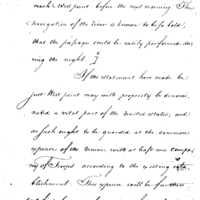 reach West point before the next morning. The
navigation of the river is known to be so bold,
that the passage could be easily performed du-
ring the night.]
If the statement here made be
just West point may with propriety be denomi-
nated a vital part of the United States, and
as such ought to be guarded at the common
expense of the union with at least one compa-
ny of Troops according to the existing esta-
blishment. This expense will be further